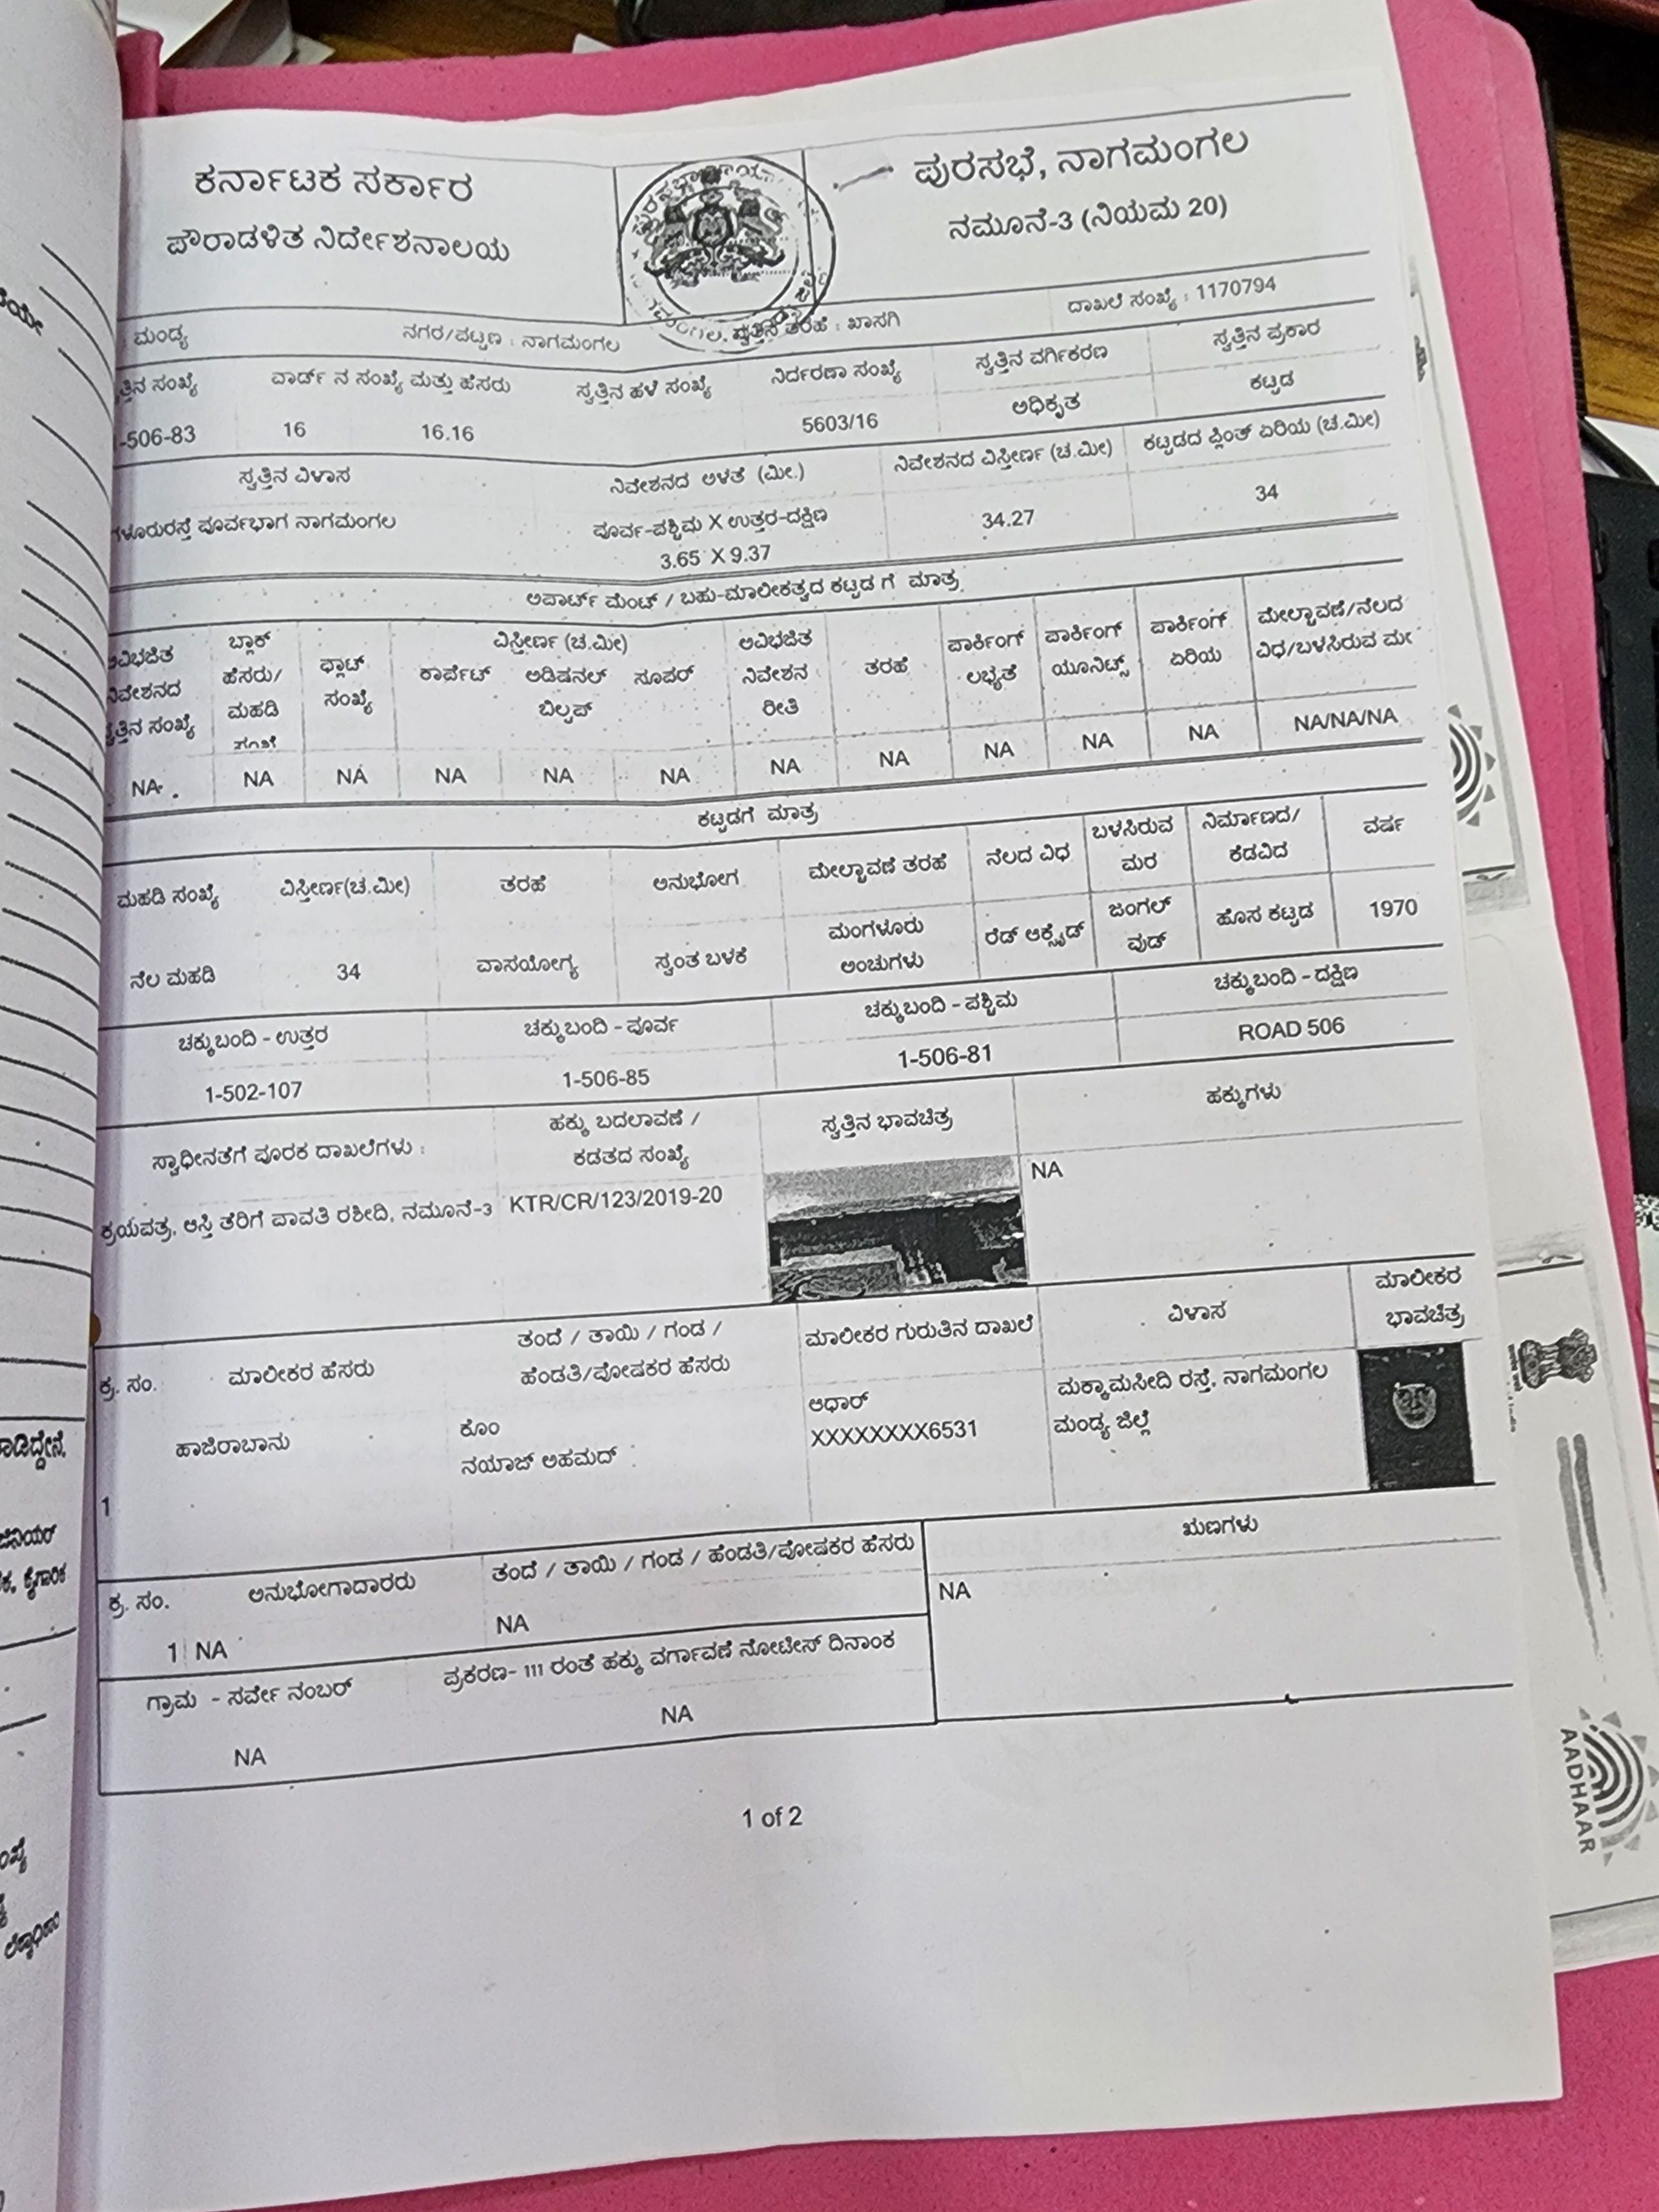 ಕರ್ನಾಟಕ ಸರ್ಕಾರ
ಪೌರಾಡಳಿತ ನಿರ್ದೇಶನಾಲಯ
ಪುರಸಭೆ, ನಾಗಮಂಗಲ
ನಮೂನೆ-3 (ನಿಯಮ 20)
ಮಂಡ್ಯ ನಗರ/ಪಟ್ಟಣ : ನಾಗಮಂಗಲ ಸ್ವತ್ತಿನ ತರಹೆ : ಖಾಸಗಿ ದಾಖಲೆ ಸಂಖ್ಯೆ : 1170794
ತ್ತಿನ ಸಂಖ್ಯೆ ವಾರ್ಡ್ ನ ಸಂಖ್ಯೆ ಮತ್ತು ಹೆಸರು ಸ್ವತ್ತಿನ ಹಳೆ ಸಂಖ್ಯೆ ನಿರ್ದರಣಾ ಸಂಖ್ಯೆ ಸ್ವತ್ತಿನ ವರ್ಗಿಕರಣ ಸ್ವತ್ತಿನ ಪ್ರಕಾರ
-506-83 16 16.16 5603/16 ಅಧಿಕೃತ ಕಟ್ಟಡ
ಸ್ವತ್ತಿನ ವಿಳಾಸ ನಿವೇಶನದ ಅಳತೆ (ಮೀ.) ನಿವೇಶನದ ವಿಸ್ತೀರ್ಣ (ಚ.ಮೀ) ಕಟ್ಟಡದ ಪ್ಲಿಂತ್ ಏರಿಯ (ಚ.ಮೀ)
ಗಳೂರುರಸ್ತೆ ಪೂರ್ವಭಾಗ ನಾಗಮಂಗಲ ಪೂರ್ವ-ಪಶ್ಚಿಮ X ಉತ್ತರ-ದಕ್ಷಿಣ 34.27 34
3.65 X 9.37
ಅಪಾರ್ಟ್ ಮೆಂಟ್ / ಬಹು-ಮಾಲೀಕತ್ವದ ಕಟ್ಟಡ ಗೆ ಮಾತ್ರ
ಅವಿಭಜಿತ ಬ್ಲಾಕ್ ಫ್ಲಾಟ್ ವಿಸ್ತೀರ್ಣ (ಚ.ಮೀ) ಅವಿಭಜಿತ ತರಹೆ ಪಾರ್ಕಿಂಗ್ ಪಾರ್ಕಿಂಗ್ ಪಾರ್ಕಿಂಗ್ ಮೇಲ್ಚಾವಣೆ/ನೆಲದ
ನಿವೇಶನದ ಹೆಸರು/ ಸಂಖ್ಯೆ ಕಾರ್ಪೆಟ್ ಅಡಿಷನಲ್ ಸೂಪರ್ ನಿವೇಶನ ಲಭ್ಯತೆ ಯೂನಿಟ್ಸ್ ಏರಿಯ ವಿಧ/ಬಳಸಿರುವ ಮರ
ಸ್ವತ್ತಿನ ಸಂಖ್ಯೆ ಮಹಡಿ ಬಿಲ್ಟಪ್ ರೀತಿ
NA NA NA NA NA NA NA NA NA NA NA NA/NA/NA
ಕಟ್ಟಡಗೆ ಮಾತ್ರ
ಮಹಡಿ ಸಂಖ್ಯೆ ವಿಸ್ತೀರ್ಣ(ಚ.ಮೀ) ತರಹೆ ಅನುಭೋಗ ಮೇಲ್ಚಾವಣೆ ತರಹೆ ನೆಲದ ವಿಧ ಬಳಸಿರುವ ನಿರ್ಮಾಣದ/ ವರ್ಷ
ಮರ ಕೆಡವಿದ
ನೆಲ ಮಹಡಿ 34 ವಾಸಯೋಗ್ಯ ಸ್ವಂತ ಬಳಕೆ ಮಂಗಳೂರು ರೆಡ್ ಆಕ್ಸೈಡ್ ಜಂಗಲ್ ಹೊಸ ಕಟ್ಟಡ 1970
ಅಂಚುಗಳು ವುಡ್
ಚಕ್ಕುಬಂದಿ - ಉತ್ತರ ಚಕ್ಕುಬಂದಿ - ಪೂರ್ವ ಚಕ್ಕುಬಂದಿ - ಪಶ್ಚಿಮ ಚಕ್ಕುಬಂದಿ - ದಕ್ಷಿಣ
1-502-107 1-506-85 1-506-81 ROAD 506
ಸ್ವಾಧೀನತೆಗೆ ಪೂರಕ ದಾಖಲೆಗಳು : ಹಕ್ಕು ಬದಲಾವಣೆ / ಸ್ವತ್ತಿನ ಭಾವಚಿತ್ರ ಹಕ್ಕುಗಳು
ಕಡತದ ಸಂಖ್ಯೆ
ಕ್ರಯಪತ್ರ, ಆಸ್ತಿ ತೆರಿಗೆ ಪಾವತಿ ರಶೀದಿ, ನಮೂನೆ-3 KTR/CR/123/2019-20 NA
ಕ್ರ. ಸಂ. ಮಾಲೀಕರ ಹೆಸರು ತಂದೆ / ತಾಯಿ / ಗಂಡ / ಮಾಲೀಕರ ಗುರುತಿನ ದಾಖಲೆ ವಿಳಾಸ ಮಾಲೀಕರ
ಹೆಂಡತಿ/ಪೋಷಕರ ಹೆಸರು ಭಾವಚಿತ್ರ
ಹಾಜಿರಾಬಾನು ಕೊಂ ಆಧಾರ್ ಮಕ್ಕಾಮಸೀದಿ ರಸ್ತೆ, ನಾಗಮಂಗಲ
1 ನಯಾಜ್ ಅಹಮದ್ XXXXXXXX6531 ಮಂಡ್ಯ ಜಿಲ್ಲೆ
ಕ್ರ. ಸಂ. ಅನುಭೋಗಾದಾರರು ತಂದೆ / ತಾಯಿ / ಗಂಡ / ಹೆಂಡತಿ/ಪೋಷಕರ ಹೆಸರು ಋಣಗಳು
1 NA NA NA
ಗ್ರಾಮ - ಸರ್ವೇ ನಂಬರ್ ಪ್ರಕರಣ- 111 ರಂತೆ ಹಕ್ಕು ವರ್ಗಾವಣೆ ನೋಟೀಸ್ ದಿನಾಂಕ
NA NA
1 of 2
AADHAAR